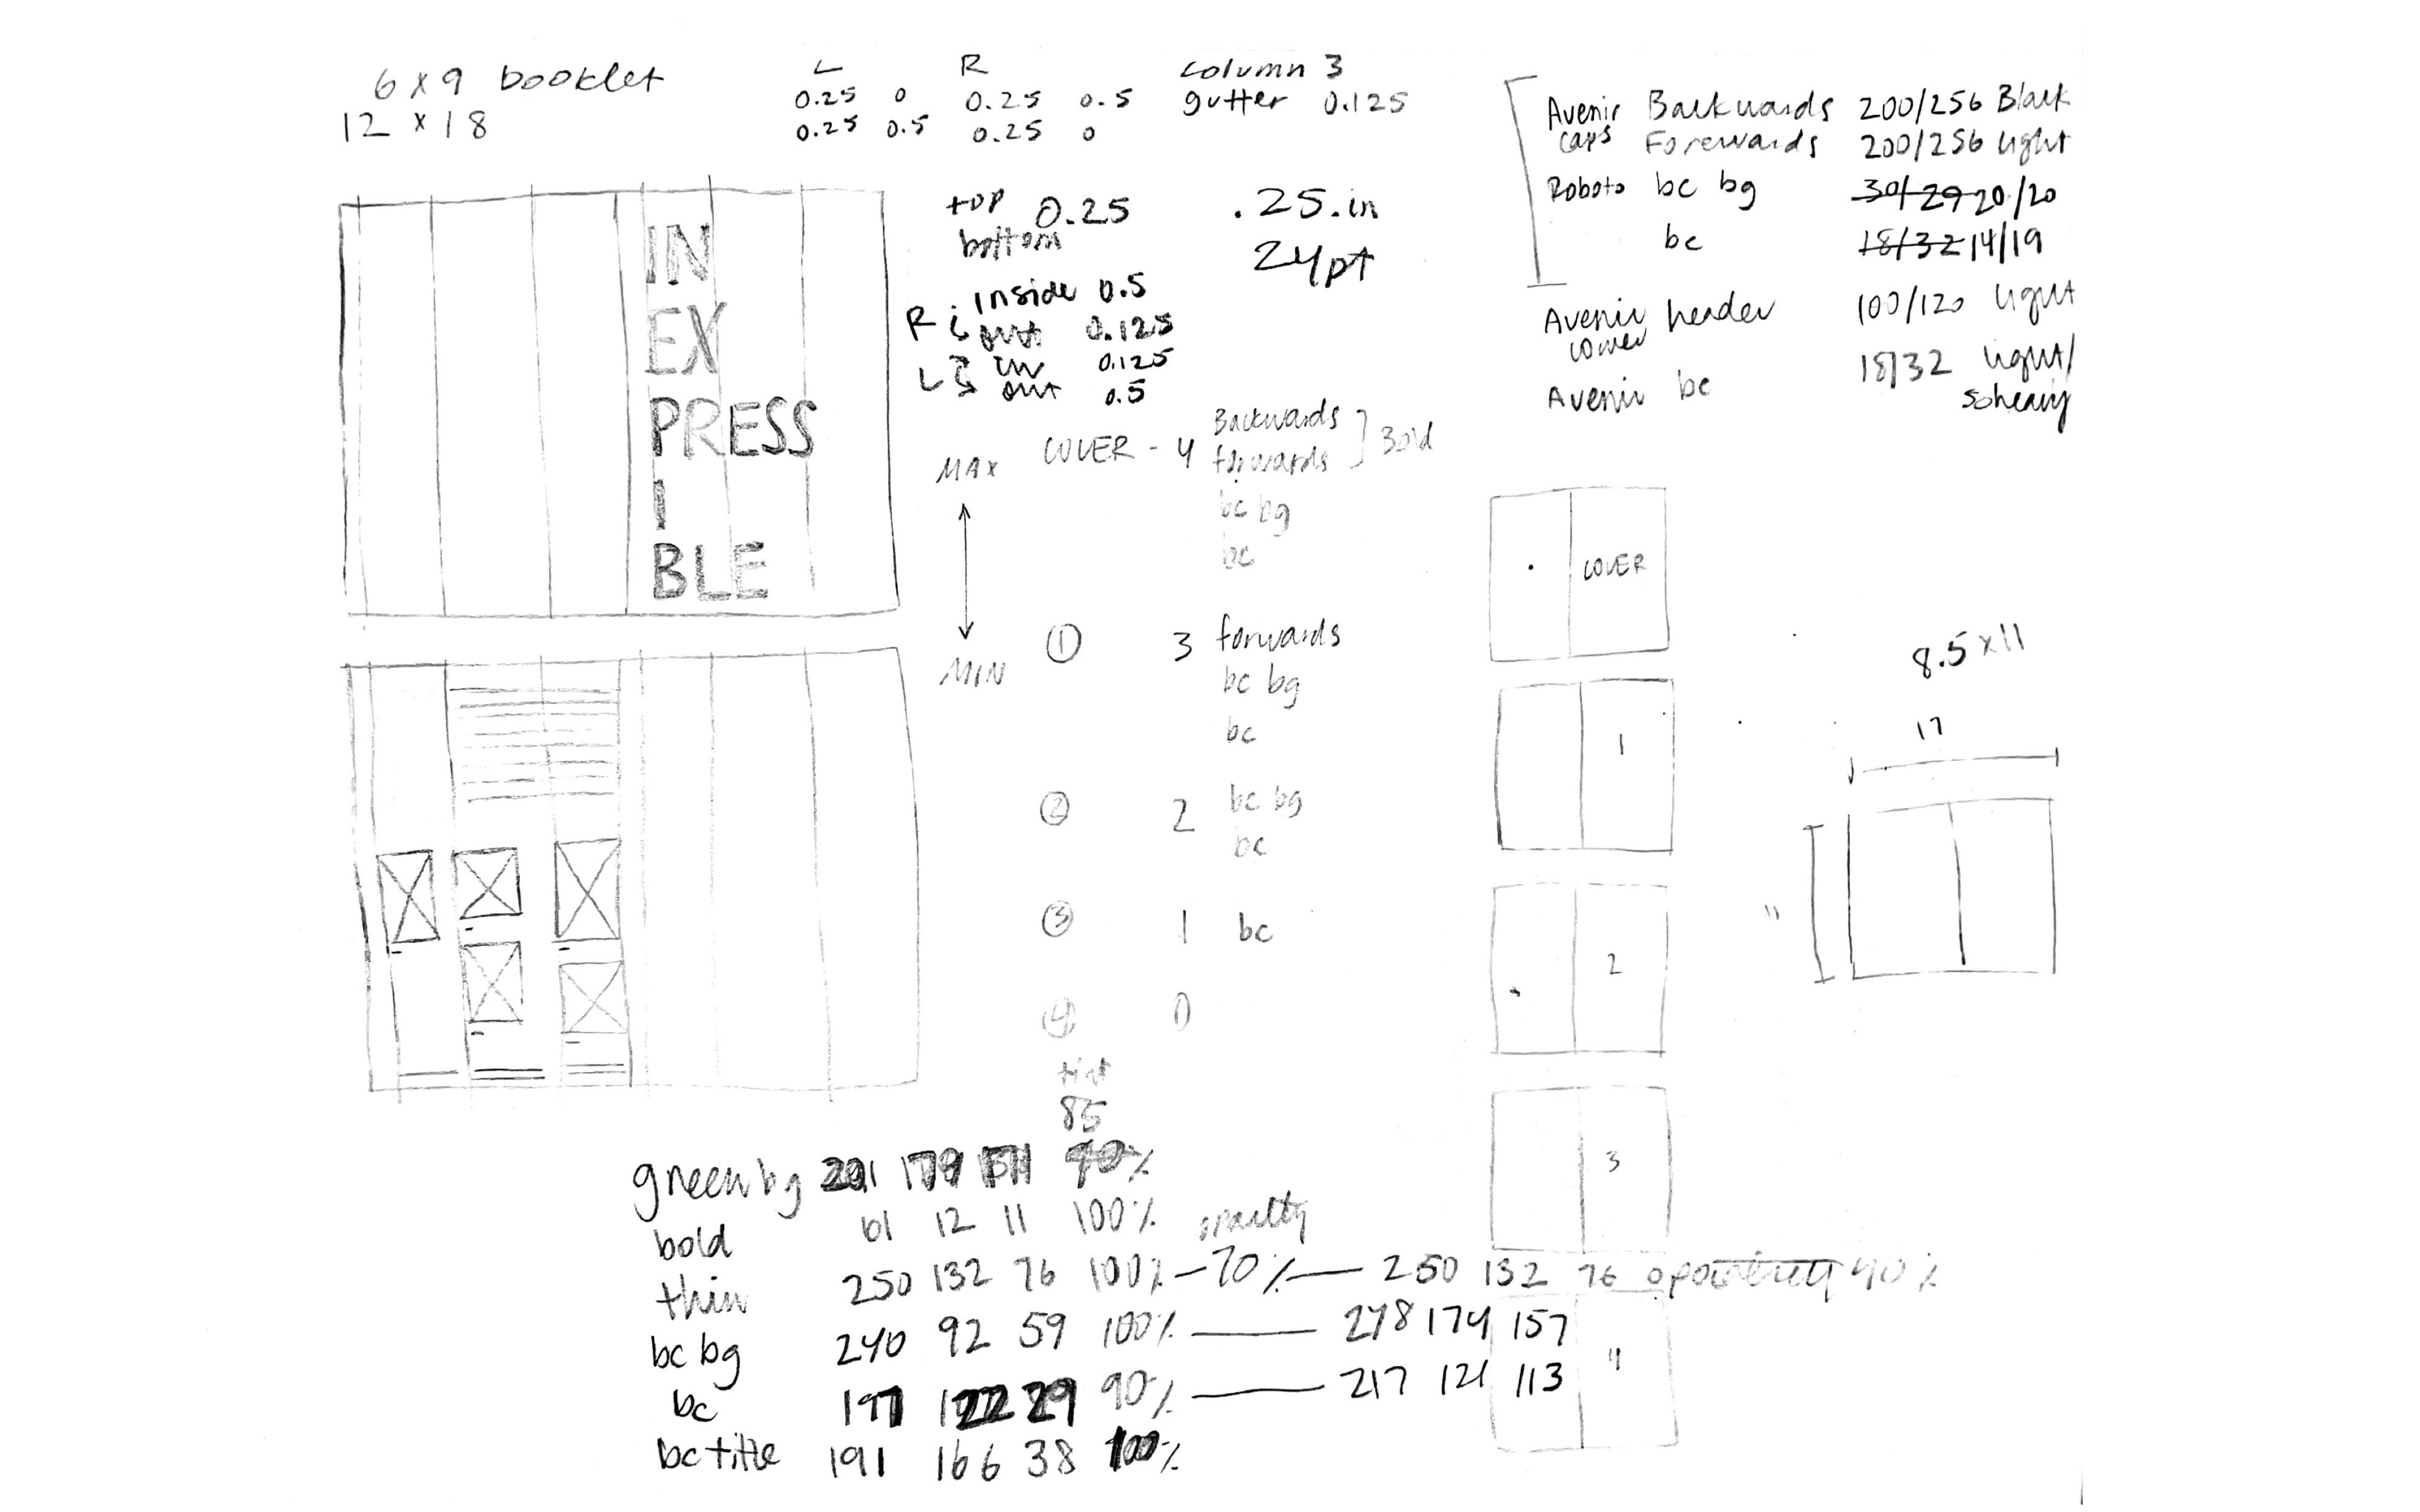 6 x 9 booklet
12 x 18
L R
0.25 0 0.25 0.5
0.25 0.5 0.25 0
column 3
gutter 0.125
top
bottom 0.25
.25.in
24pt
R inside 0.5
out 0.125
L in 0.125
out 0.5
Avenir caps Backwards 200/256 Black
Forewards 200/256 light
Roboto bc bg 30/29 20/20
bc 18/32 14/19
Avenir lower header 100/120 light
Avenir bc 18/32 light/
IN
EX
PRESS
I
BLE
MAX
MIN
COVER - 4 Backwards
forwards
Bold
bc bg
bc
1 3 forwards
bc bg
bc
2 2 bc bg
bc
3 1 bc
4 0
COVER
1
2
3
4
8.5 x 11
17
11
tint
85
green bg 201 179 171 90%
bold 61 12 11 100%
opacity
thin 250 132 76 100% - 70% — 250 132 76 opacity 40%
bc bg 240 92 59 100% — 248 174 157
bc 197 122 29 90% — 217 121 113
bc title 191 166 38 100%